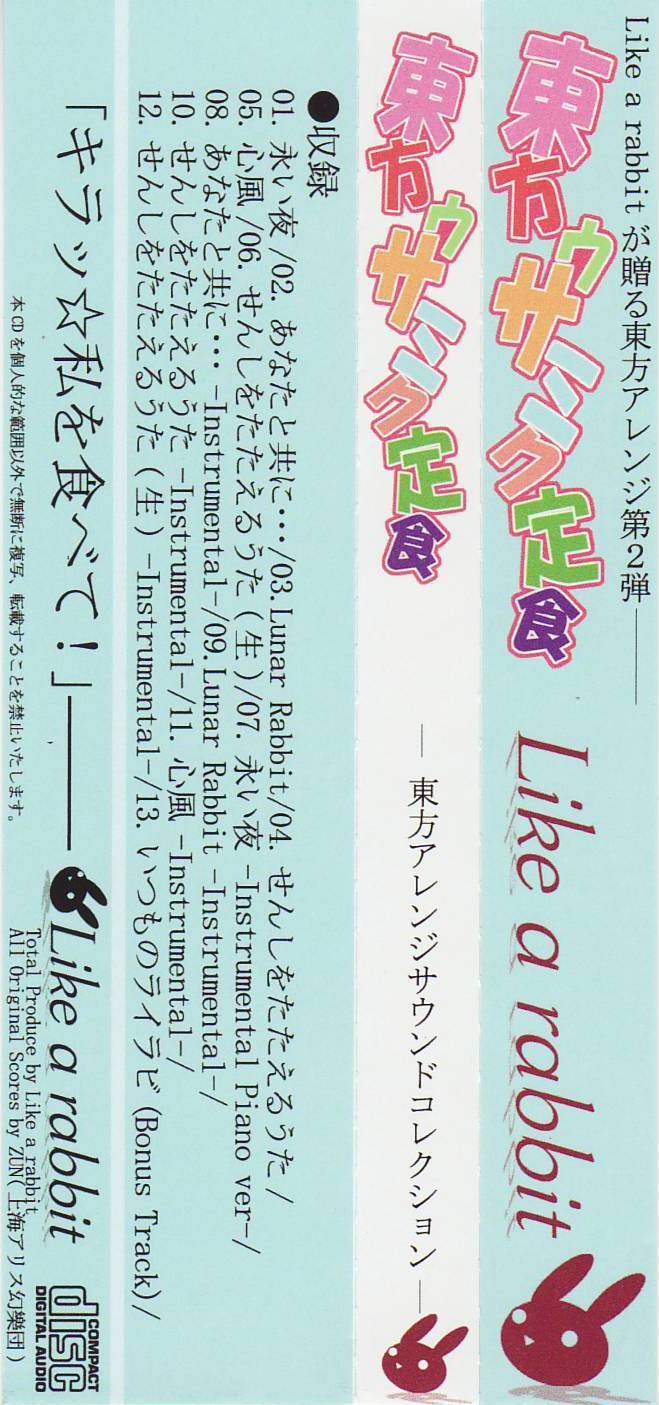 Like a rabbitが贈る東方アレンジ第2弾――
東方ウサミンク定食
Like a rabbit
東方ウサミンク定食
― 東方アレンジサウンドコレクション ―
●収録
01. 永い夜/02. あなたと共に･･･/03.Lunar Rabbit/04. せんしをたたえるうた/
05. 心風/06. せんしをたたえるうた(生)/07. 永い夜 -Instrumental Piano ver-/
08. あなたと共に･･･ -Instrumental-/09.Lunar Rabbit -Instrumental-/
10. せんしをたたえるうた -Instrumental-/11. 心風 -Instrumental-/
12. せんしをたたえるうた(生) -Instrumental-/13. いつものライラビ(Bonus Track)/
「キラッ☆私を食べて！」――
Like a rabbit
本CDを個人的な範囲以外で無断に複写、転載することを禁止いたします。
Total Produce by Like a rabbit
All Original Scores by ZUN(上海アリス幻樂団)
COMPACT
disc
DIGITAL AUDIO